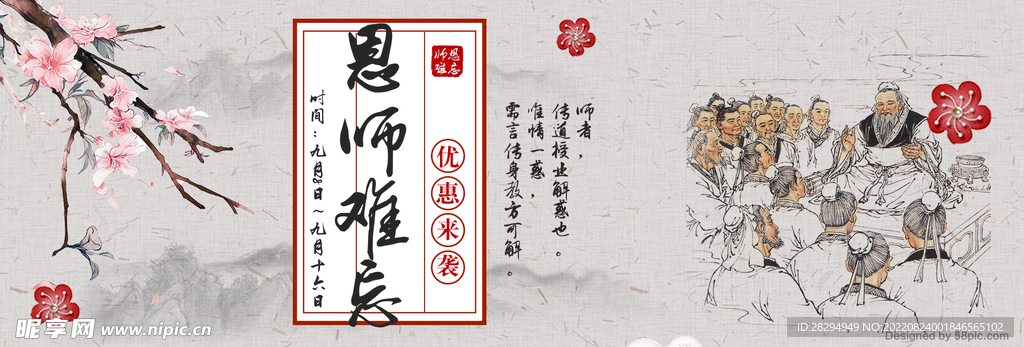 恩师难忘
恩师难忘
优惠来袭
时间：九月8日～九月十六日
师者，
传道授业解惑也。
唯情一惑，
需言传身教方可解。
昵享网 www.nipic.cn
ID:28294949 NO:20220824001846565102
Designed by 58pic.com